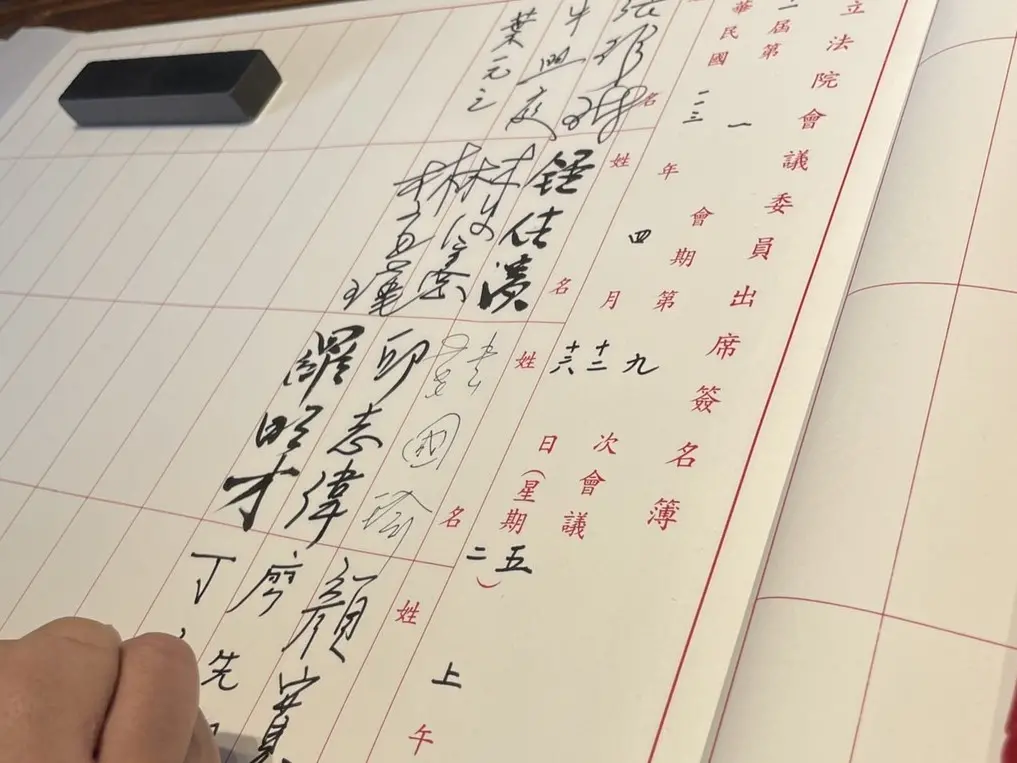 立法院會議委員出席簽名簿
屆第一會期第九次會議
華民國一一三年四月十二十六日(星期五二)
上午
姓名
牛煦庭
葉元之
姓名
鍾佳濱
姓名
韓國瑜
邱志偉
羅明才
姓
顏寬
廖先
丁